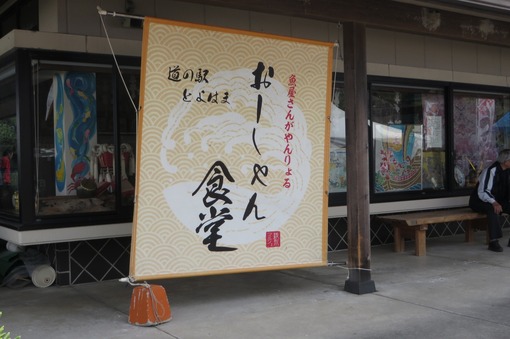 魚屋さんがやんりょる
おーしゃん
食堂
道の駅
とよはま